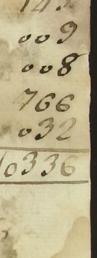 009
008
766
032
10336